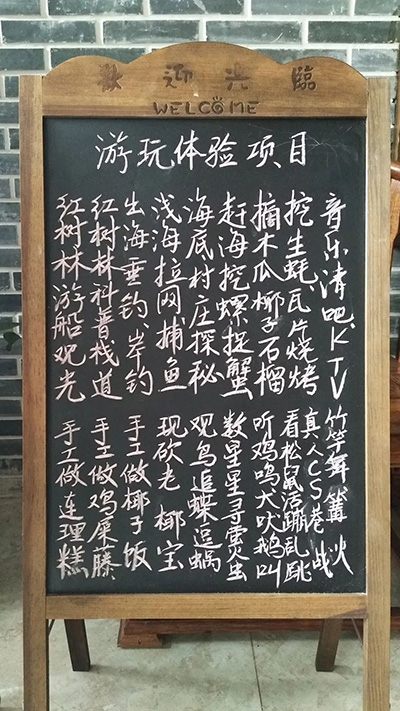 歡迎光臨
WELCOME
游玩体验项目
音乐清吧、KTV
挖生蚝、瓦片烧烤
摘木瓜椰子石榴
赶海挖螺捉蟹
海底村庄探秘
浅海拉网捕鱼
出海垂钓、岸钓
红树林科普栈道
红树林游船观光
竹竿舞、篝火
真人CS巷战
看松鼠活蹦乱跳
听鸡鸣犬吠鹅叫
数星星寻霊虫
观鸟追蝶逗蜗
现砍老椰宝
手工做椰子饭
手工做鸡屎藤
手工做连理糕